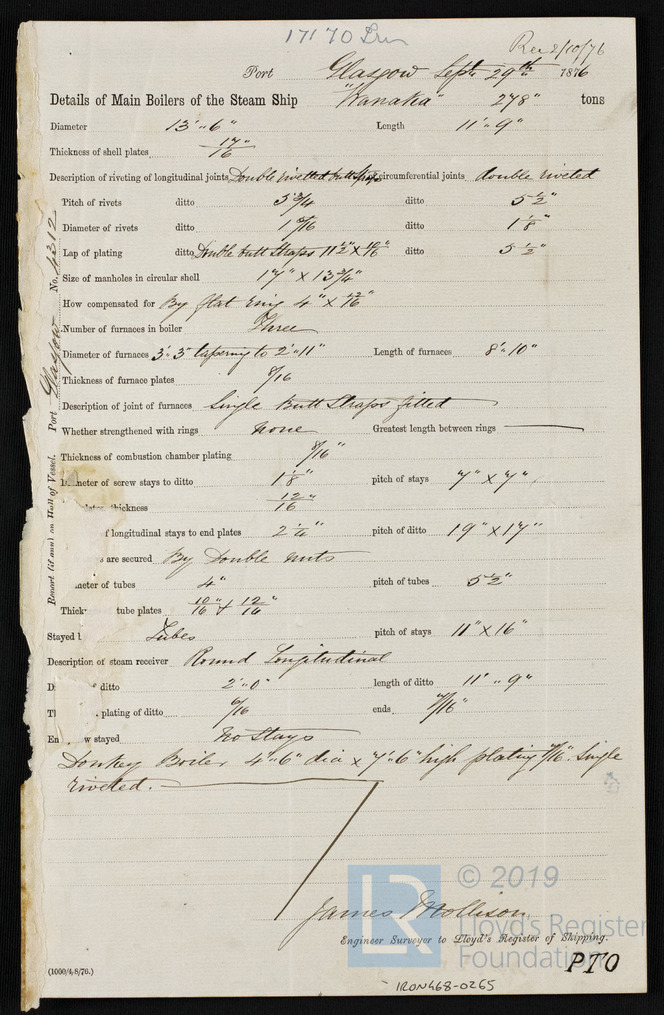 17170 Irn
Rec 2/10/76
Port Glasgow Sept. 29th 1876
Details of Main Boilers of the Steam Ship "Wanaka" 278 tons
Diameter 13'-6" Length 11'-9"
Thickness of shell plates 17/16"
Description of riveting of longitudinal joints Double rivetted butt straps circumferential joints double riveted
Pitch of rivets ditto 5 3/4 ditto 5 1/2"
Diameter of rivets ditto 1 3/16 ditto 1 1/8"
Lap of plating ditto Double butt straps 11 1/2" x 10/16" ditto 5 1/2"
Size of manholes in circular shell 17" x 13 3/4"
How compensated for By flat ring 4" x /16"
Number of furnaces in boiler Three
Diameter of furnaces 3'-3" tapering to 2'-11" Length of furnaces 8'-10"
Thickness of furnace plates 8/16
Description of joint of furnaces Single Butt Straps fitted
Whether strengthened with rings None Greatest length between rings
Thickness of combustion chamber plating 8/16"
Diameter of screw stays to ditto 1 1/8" pitch of stays 7" x 7"
plates thickness 12/16"
of longitudinal stays to end plates 2 1/4" pitch of ditto 19" x 17"
s are secured By Double nuts
meter of tubes 4" pitch of tubes 5 1/2"
Thick tube plates 10/16 + 12/16"
Stayed b Tubes pitch of stays 11" x 16"
Description of steam receiver Round Longitudinal
D of ditto 2'-0" length of ditto 11'-9"
Th plating of ditto 6/16 ends 7/16"
En w stayed No Stays
Donkey Boiler 4'-6" dia x 7'-6" high plating 7/16" Single
riveted.
James Mollison
Engineer Surveyor to Lloyd's Register of Shipping.
PTO
(1000/4/8/76.)
IRON468-0265
Port Glasgow No. 4312
Report (if any) on Hull of Vessel.
LR
© 2019
Lloyd's Register
Foundation